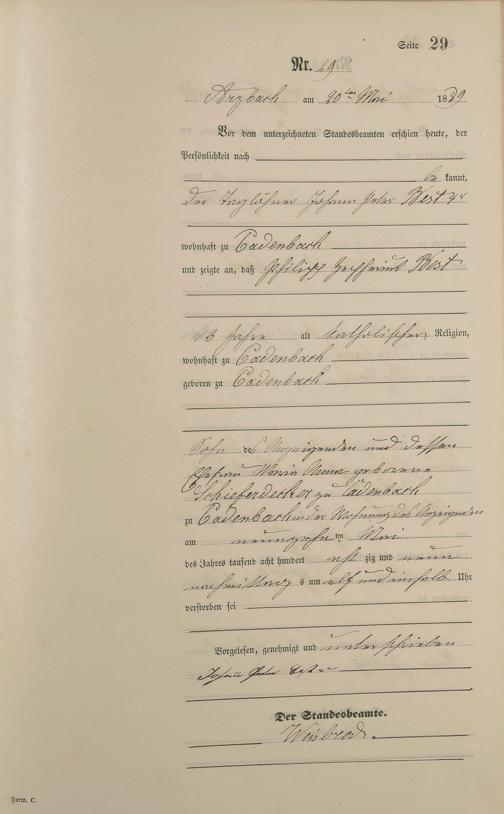 Seite 29
Nr. 29
Arzbach am 20ten Mai 1889
Vor dem unterzeichneten Standesbeamten erschien heute, der
Persönlichkeit nach
be kannt,
der Taglöhner Johann Peter Best
wohnhaft zu Cadenbach
und zeigte an, daß Philipp Best
3 Jahre alt katholischer Religion,
wohnhaft zu Cadenbach
geboren zu Cadenbach
Sohn des Anzeigenden und dessen
Ehefrau Maria Anna geborene
Schieferdecker zu Cadenbach
zu Cadenbach in der Wohnung des Anzeigenden
am neunzehnten Mai
des Jahres tausend acht hundert acht zig und neun
nachmittag s um elf und einhalb Uhr
verstorben sei
Vorgelesen, genehmigt und unterschrieben
Johann Peter Best
Der Standesbeamte.
Form. C.